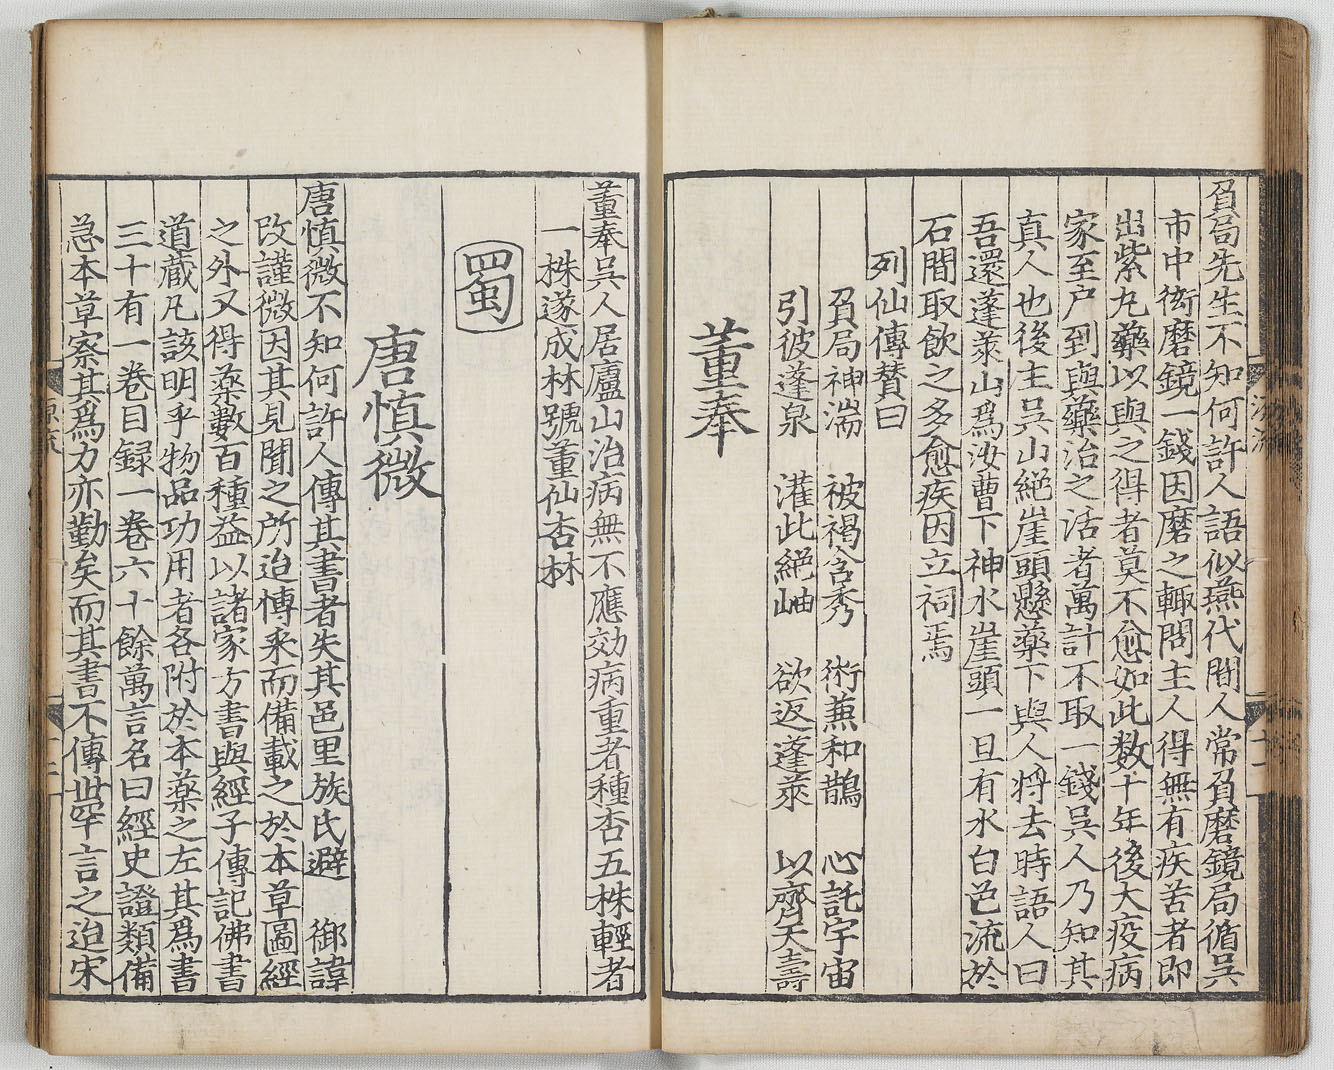 負局先生不知何許人語似燕代間人常負磨鏡局循吳
市中衒磨鏡一錢因磨之輙問主人得無有疾苦者即
出紫丸藥以與之得者莫不愈如此數十年後大疫病
家至户到與藥治之活者萬計不取一錢吳人乃知其
真人也後主吳山絕崖頭懸藥下與人將去時語人曰
吾還蓬萊山爲汝曹下神水崖頭一旦有水白色流於
石間取飲之多愈疾因立祠焉
列仙傳賛曰
負局神湍 被褐含秀 術蕪和鵲 心託宇宙
引彼蓬泉 灌此絕岫 欲返蓬萊 以齊天壽
董奉
董奉吳人居廬山治病無不應効病重者種杏五株輕者
一株遂成林號董仙杏林
蜀
唐慎微
唐慎微不知何許人傳其書者失其邑里族氏避 御諱
改謹微因其見聞之所迨愽来而備載之於本草圖經
之外又得藥數百種益以諸家方書與經子傳記佛書
道藏凡該明乎物品功用者各附於本藥之左其爲書
三十有一卷目録一卷六十餘萬言名曰經史證類備
急本草察其爲力亦勤矣而其書不傳世罕言之迨宋
源流